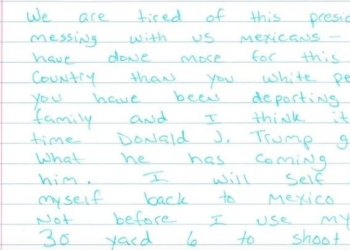 We are tired of this presid
messing with us mexicans -
have done more for this
country than you white pe
you have been deporting
family and I think it
time Donald J. Trump g
What he has coming
him. I will self
myself back to mexico
Not before I use my
30 yard 6 to shoot